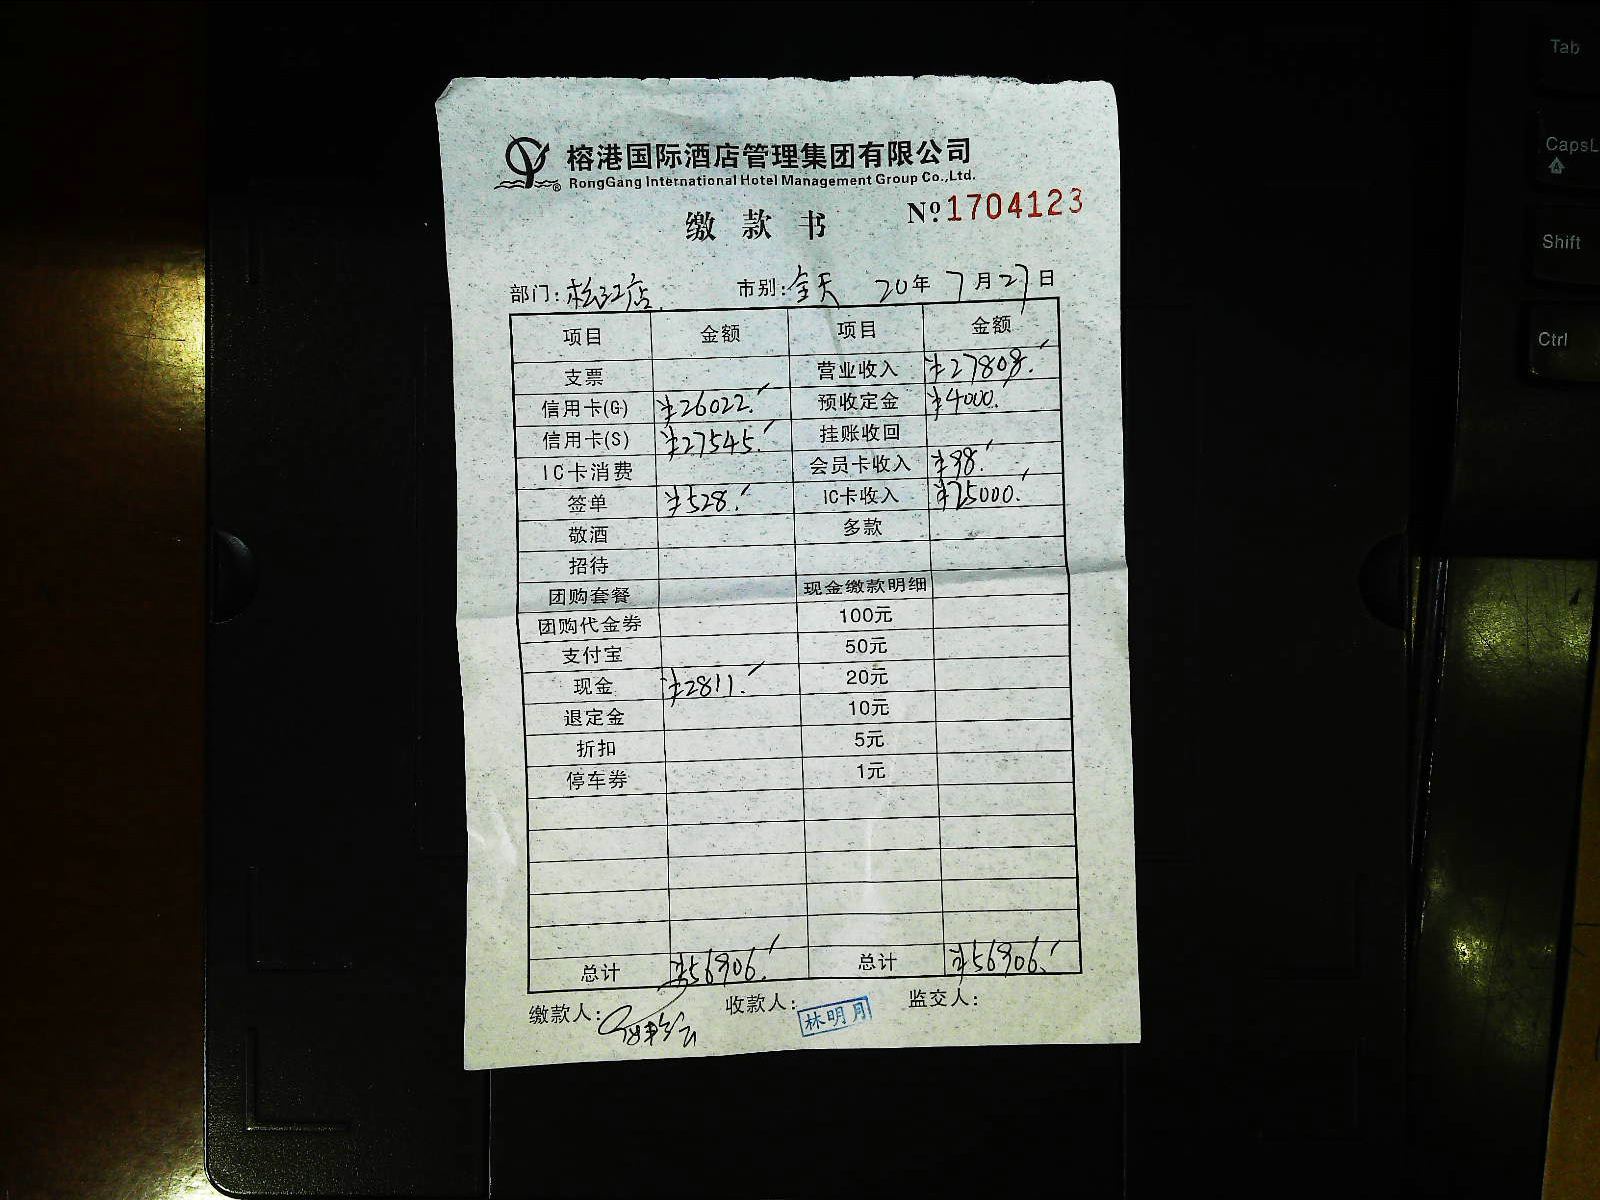 榕港国际酒店管理集团有限公司
RongGang International Hotel Management Group Co.,Ltd.
缴款书 Nº1704123
部门:松江店. 市别:全天 20年7月27日
项目 金额 项目 金额
支票 营业收入 ¥27808.
信用卡(G) ¥26022. 预收定金 ¥4000.
信用卡(S) ¥27545. 挂账收回
IC卡消费 会员卡收入 ¥98.
签单 ¥528. IC卡收入 ¥25000.
敬酒 多款
招待
团购套餐 现金缴款明细
团购代金券 100元
支付宝 50元
现金 ¥2811. 20元
退定金 10元
折扣 5元
停车券 1元
总计 ¥56906. 总计 ¥56906.
缴款人: 收款人:林明月 监交人:
Tab
CapsL
Shift
Ctrl